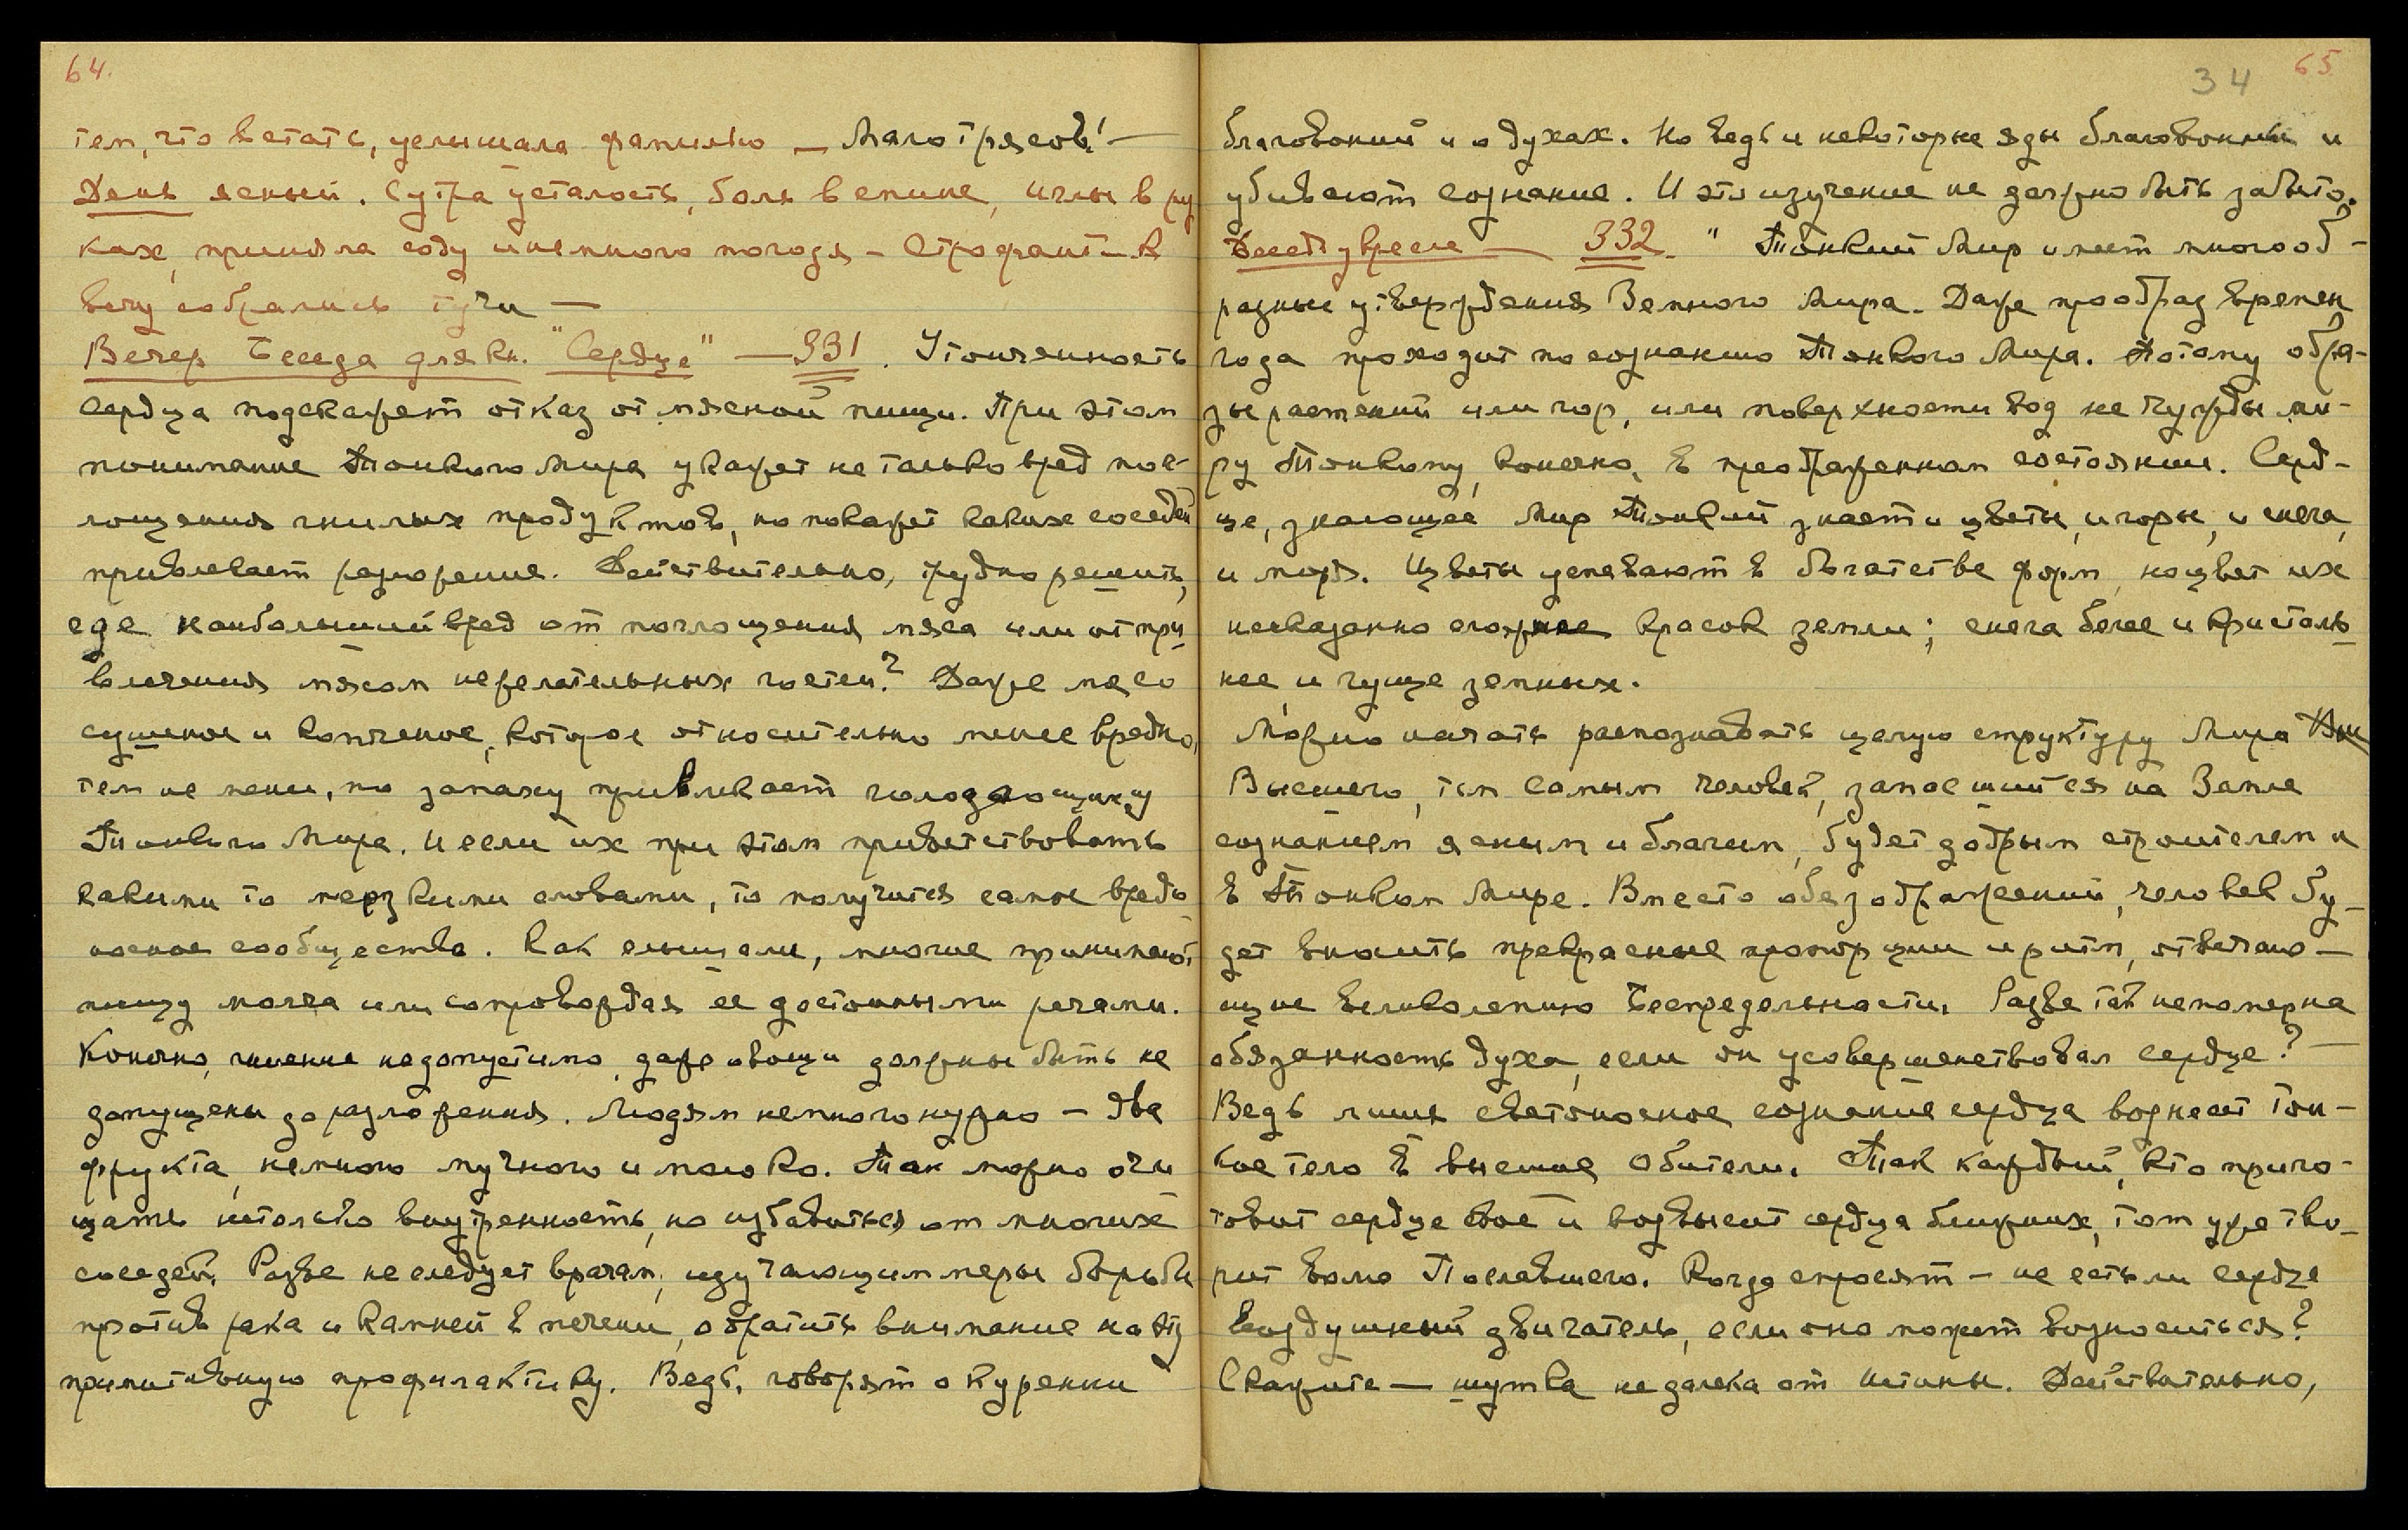 64.
тем, что встать, услышала фамилию — Малотрясов! —
День ясный. С утра усталость, боль в спине, иглы в ру
ках, приняла соду и немного погодя — Строфант — К
вечу собрались тучи —
Вечер Беседа для кн. "Сердце" — 331. Утонченность
сердца подскажет отказ от мясной пищи. При этом
понимание Тонкого Мира укажет не только вред пог-
лощения гнилых продуктов, но покажет каких соседей
привлекает разложение. Действительно, трудно решить,
где наибольший вред от поглощения мяса или от при
влечения мясом нежелательных гостей? Даже мясо
сушеное и копченое, которое относительно менее вредно,
тем не менее, по запаху привлекает голодающих
Тонкого Мира. И если их при этом приветствовать
какими то мерзкими словами, то получится самое вредо-
носное сообщество. Как слышали, многие принимают
пищу молча или сопровождая ее достойными речами.
Конечно, гниение недопустимо, даже овощи должны быть не
допущены до разложения. Людям немного нужно — два
фрукта, немного мучного и молоко. Так можно очи
щать не только внутренность, но избавиться от многих
соседей. Разве не следует врачам, изучающим меры борьбы
против рака и камней в печени, обратить внимание на эту
примитивную профилактику. Ведь, говорят о курении
34 65
благовоний и о духах. Но ведь и некоторые яды благовонны и
убивают сознание. И это изучение не должно быть забыто.
332. " Тонкий Мир имеет много об-
разные утверждения Земного Мира. Даже прообраз времен
года проходит по сознанию Тонкого Мира. Потому обра-
зы растений или гор, или поверхности вод не чужды ми-
ру Тонкому, конечно, в преображенном состоянии. Серд-
це, знающее Мир Тонкий знает и цветы, и горы, и снега,
и моря. Цветы успевают в богатстве форм, но цвет их
несказанно сложнее красок земли; снега белее и кристаль
нее, и гуще земных.
Можно начать распознавать целую структуру Мира
Высшего, тем самым человек, запасшийся на Земле
сознанием ясным и благим, будет добрым строителем и
в Тонком Мире. Вместо обезображений, человек бу-
дет вносить прекрасные пропорции и ритм, отвечаю-
щие великолепию Беспредельности. Разве так непомерна
обязанность духа, если он усовершенствовал сердце? —
Ведь лишь светоносное сознание сердца вознесет тон-
кое тело в высшие Обители. Так каждый, кто приго-
товит сердце свое и возвысит сердца ближних, тот уже тво-
рит волю Пославшего. Когда спросят — не есть ли сердце
воздушный двигатель, если оно может возноситься?
Скажите — шутка не далека от истины. Действительно,